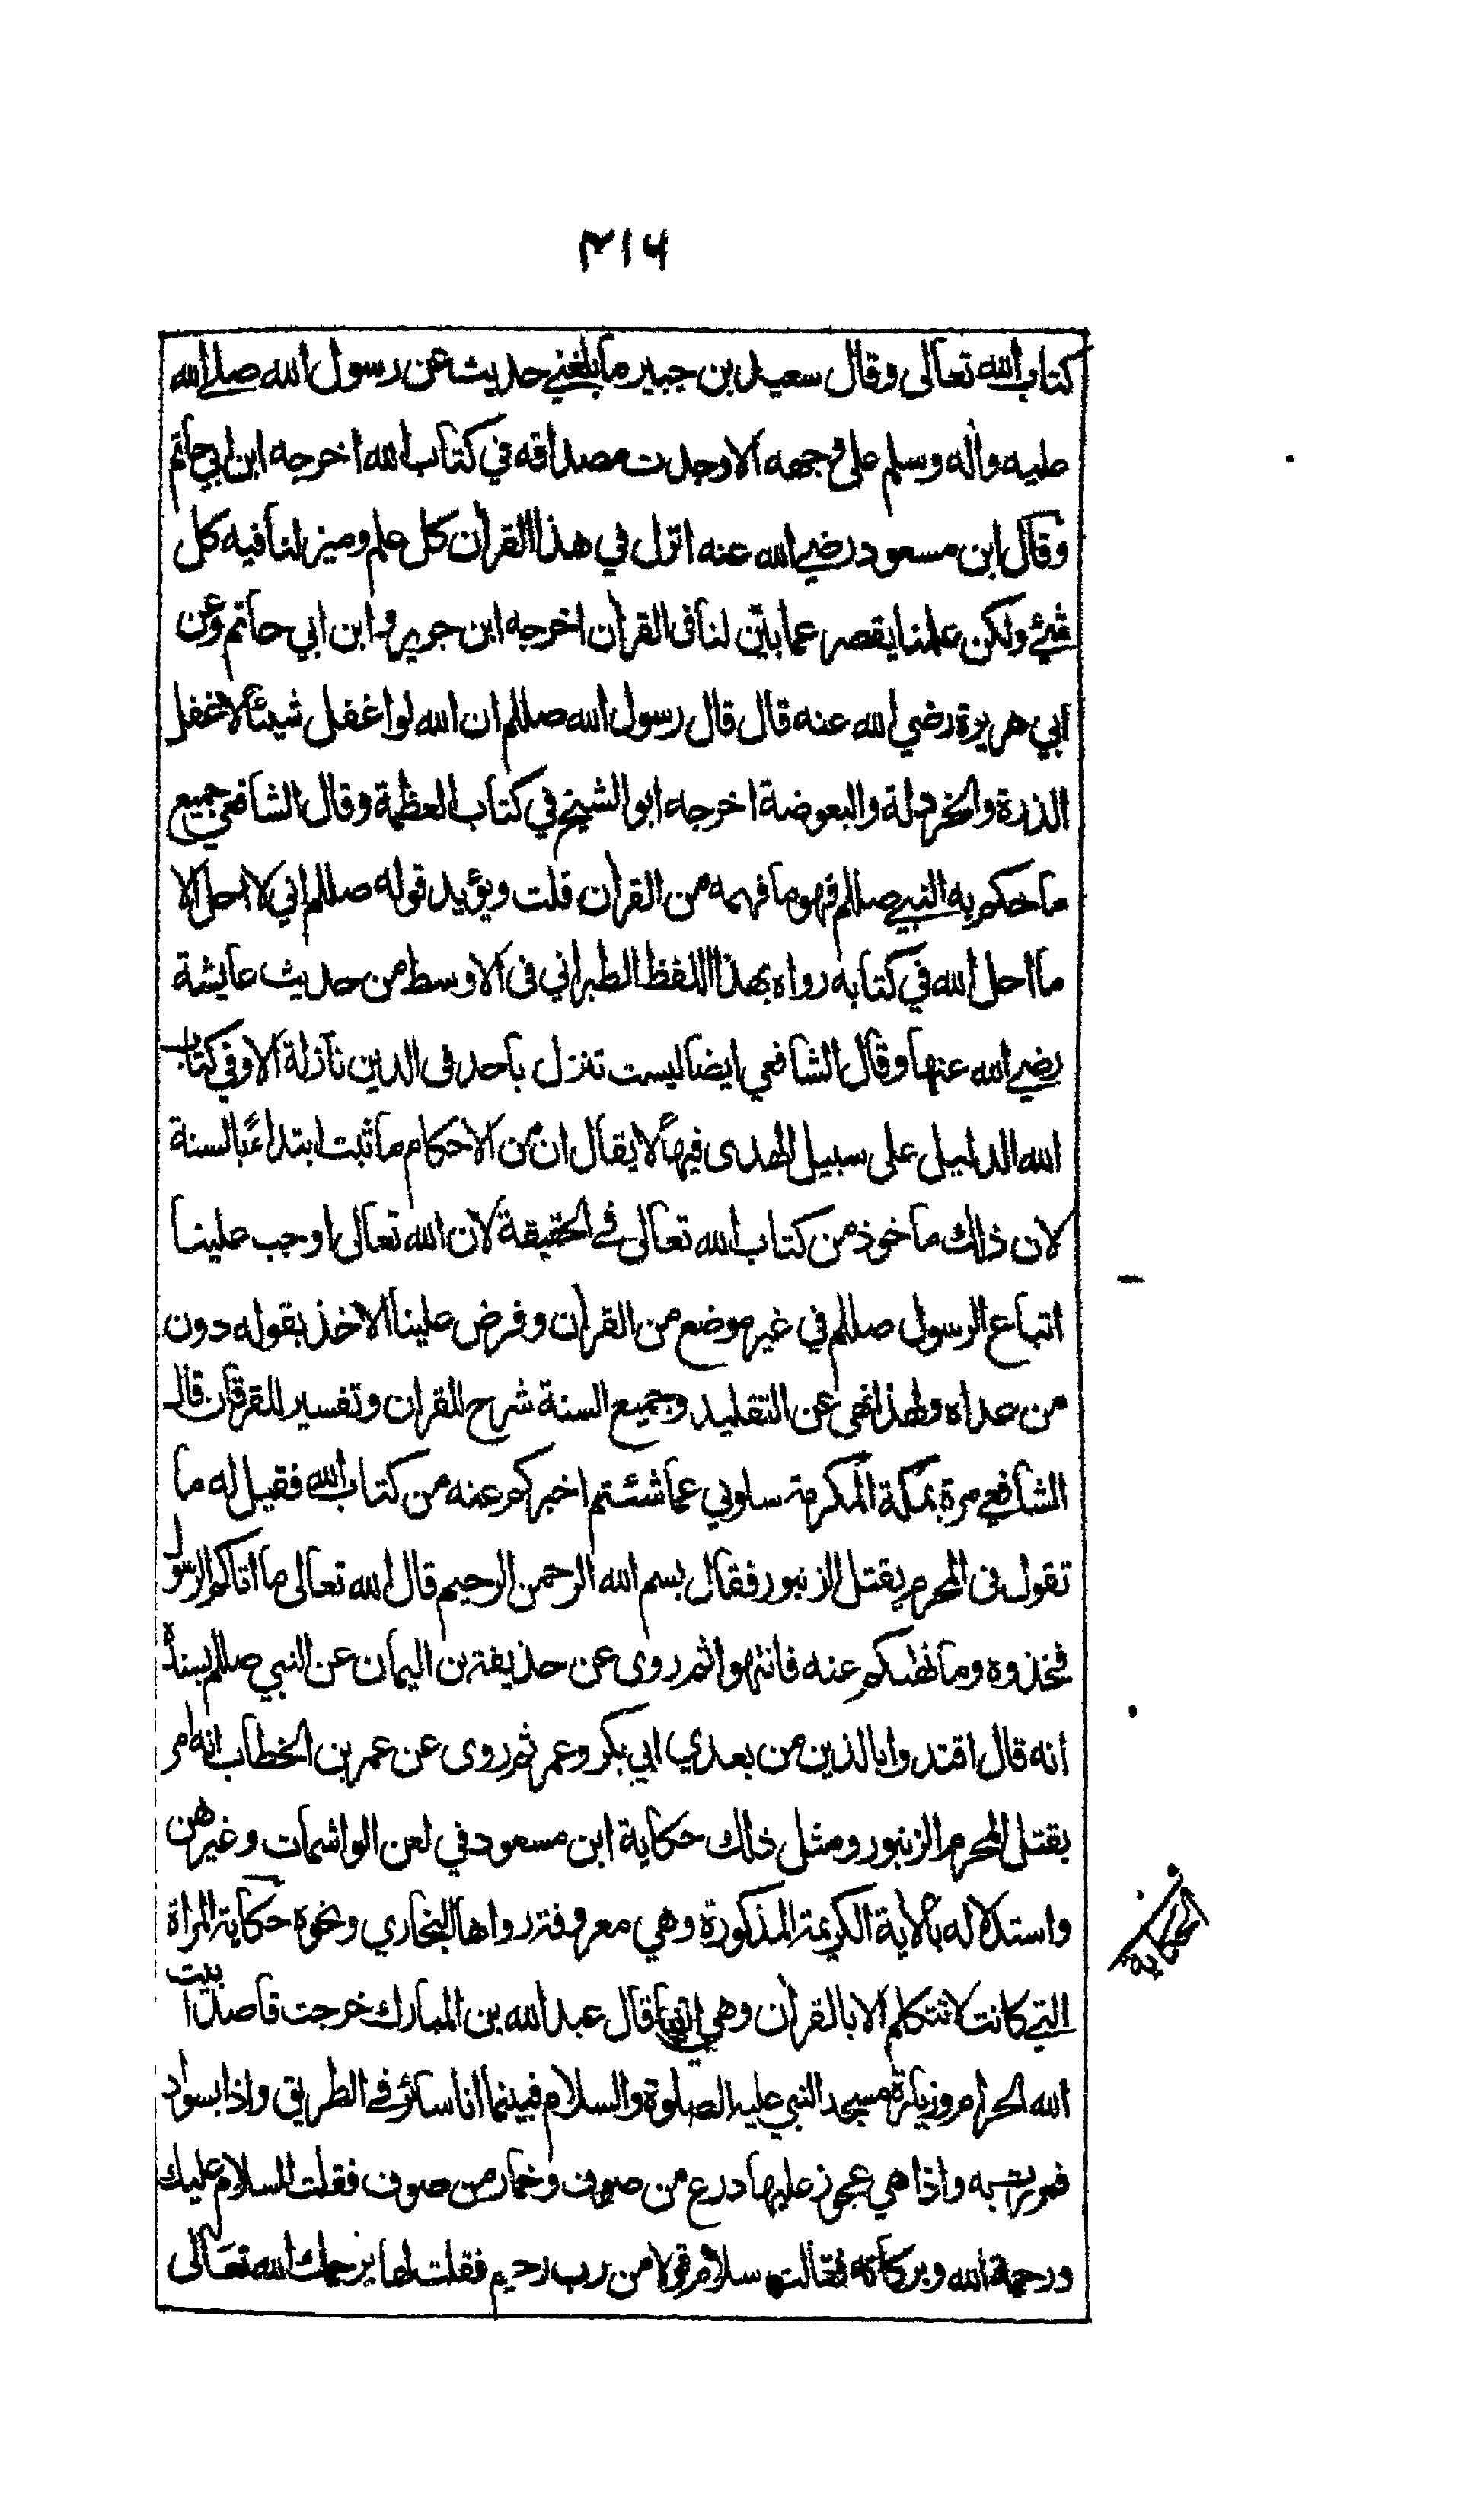 ٣١٦
كتاب الله تعالى وقال سعيد بن جبير ما بلغني حديث عن رسول الله صلى الله
عليه وآله وسلم على وجهه الا وجدت مصداقه في كتاب الله اخرجه ابن ابي حاتم
وقال ابن مسعود رضي الله عنه انزل في هذا القرآن كل علم وميز لنا فيه كل
شيء ولكن علمنا يقصر عما بين لنا في القرآن اخرجه ابن جرير و ابن ابي حاتم وعن
ابي هريرة رضي الله عنه قال قال رسول الله صللم ان الله لو اغفل شيئا لاغفل
الذرة والخردلة والبعوضة اخرجه ابو الشيخ في كتاب العظمة وقال الشافعي جميع
ما حكم به النبي صللم فهو ما فهمه من القرآن قلت ويؤيد قوله صللم اني لا احل الا
ما احل الله في كتابه رواه بهذا اللفظ الطبراني في الاوسط من حديث عايشة
رضي الله عنها وقال الشافعي ايضا ليست تنزل باحد في الدين نازلة الا وفي كتاب
الله الدليل على سبيل الهدى فيها لا يقال ان من الاحكام ما ثبت ابتداءً بالسنة
لان ذلك ماخوذ من كتاب الله تعالى في الحقيقة لان الله تعالى اوجب علينا
اتباع الرسول صللم في غير موضع من القرآن وفرض علينا الاخذ بقوله دون
من عداه ولهذا نهى عن التقليد وجميع السنة شرح للقران وتفسير للفرقان قال
الشافعي مرة بمكة المكرمة سلوني عما شئتم اخبركم عنه من كتاب الله فقيل له ما
تقول في المحرم يقتل الزنبور فقال بسم الله الرحمن الرحيم قال الله تعالى ما اتاكم الرسول
فخذوه وما نهىكم عنه فانتهوا ثم روى عن حذيفة بن اليمان عن النبي صللم بسنده
انه قال اقتدوا بالذين من بعدي ابي بكر وعمر ثم روى عن عمر بن الخطاب انه امر
بقتل المحرم الزنبور ومثل ذلك حكاية ابن مسعود في لعن الواشمات وغيرهن
واستدلاله بالآية الكريمة المذكورة وهي معروفة رواها البخاري ونحوه حكاية المراة
التي كانت لا تتكلم الا بالقرآن وهي انها قال عبد الله بن المبارك خرجت قاصدا بيت
الله الحرام وزيارة مسجد النبي عليه الصلوة والسلام فبينما انا سائر في الطريق واذا بسواد
فمررت به واذا هي عجوز عليها درع من صوف وخمار من صوف فقلت السلام عليك
ورحمة الله وبركاته فقالت سلام قولا من رب رحيم فقلت لها يرحمك الله تعالى